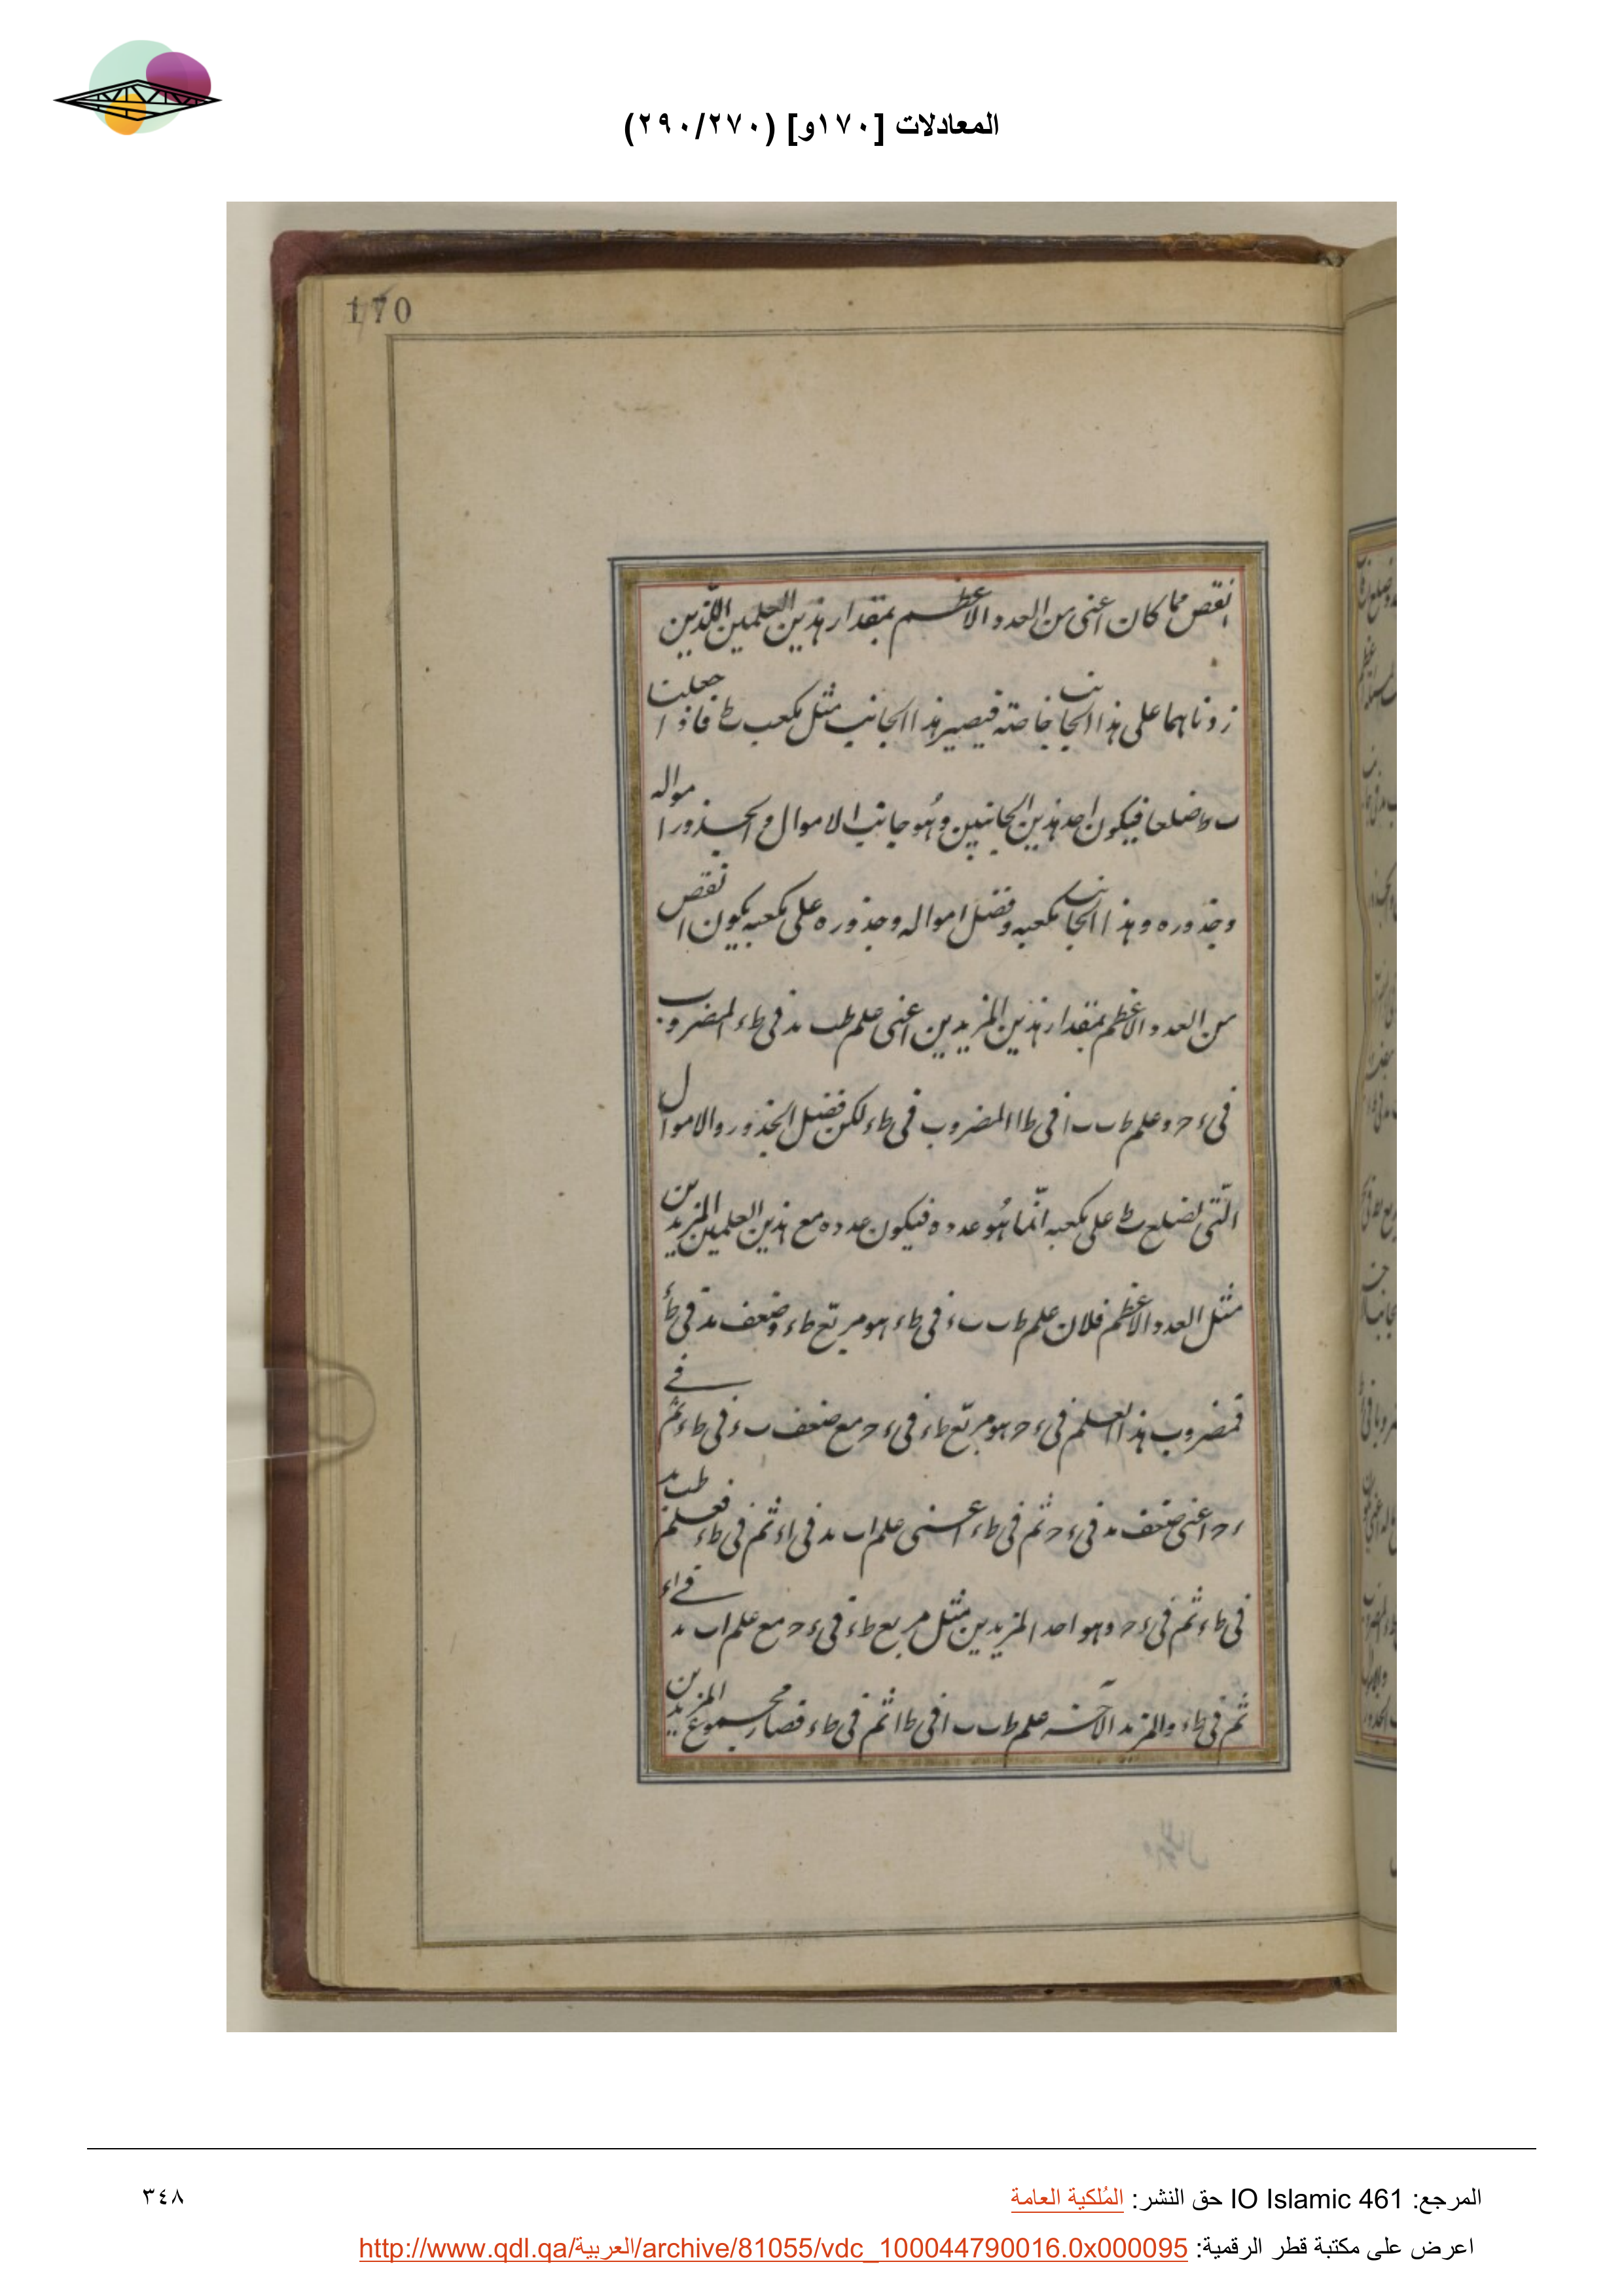 المعادلات [١٧٠و] (٢٩٠/٢٧٠)
170
انقص مما كان اعنى من العدد الاعظم بمقدار هذين العلمين اللذين
زدناهما على هذا الجانب خاصة فيصير هذا الجانب مثل مكعب ط فاذا جعلنا
ب ط ضلعا فيكون احد هذين الجانبين وهو جانب الاموال والجذور امواله
وجذوره وهذا الجانب مكعبه وفضل امواله وجذوره على مكعبه يكون انقص
من العدد الاعظم بمقدار هذين المزيدين اعنى علم طب مد فى طء المضروب
فى ء ح وعلم ط ب ب ا فى ط ا المضروب فى ط ء لكن فضل الجذور والاموال
التى لضلع ط على مكعبه انما هو عدده فيكون عدده مع هذين العلمين المزيدين
مثل العدد الاعظم فلان علم ط ب ب ء فى ط ء هو مربع ط ء وضعف مد فى ط ء
فمضروب هذا العلم فى ء ح هو مربع ط ء فى ء ح مع ضعف ب ء فى ط ء ثم فى
ء ح اعنى ضعف مد فى ء ح ثم فى ط ء اعنى علم ا ب مد فى ا ء ثم فى ط ء فعلم طب مد
فى ط ء ثم فى ء ح وهو احد المزيدين مثل مربع ط ء فى ء ح مع علم ا ب مد فى ا ء
ثم فى ط ء والمزيد الآخر علم ط ب ب ا فى ط ا ثم فى ط ء فصار مجموع المزيدين
المرجع: IO Islamic 461 حق النشر: المُلكية العامة
٣٤٨
اعرض على مكتبة قطر الرقمية: http://www.qdl.qa/العربية/archive/81055/vdc_100044790016.0x000095